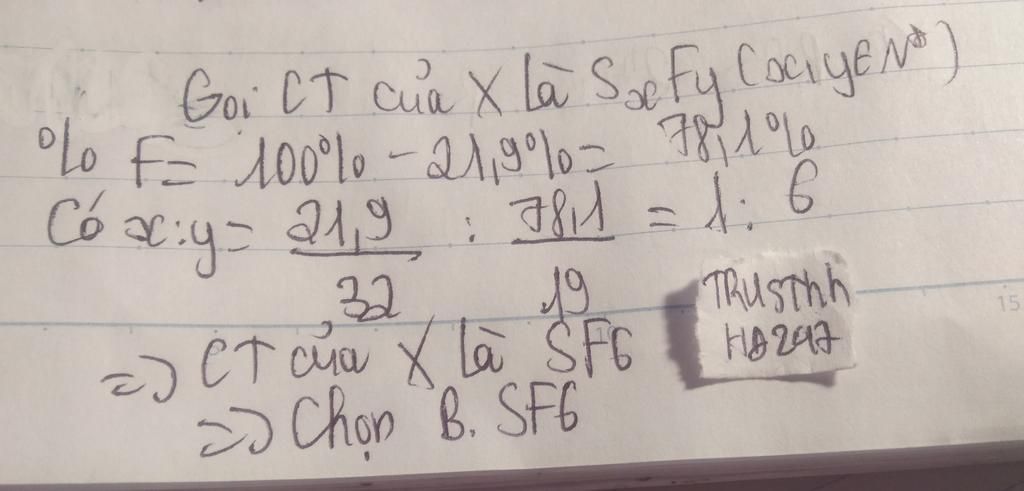 Gọi CT của X là SxFy (x,y∈N*)
% F = 100% - 21,9% = 78,1%
Có x:y = 21,9/32 : 78,1/19 = 1: 6
TRUSTHh
HD247
=> CT của X là SF6
=> Chọn B. SF6
15